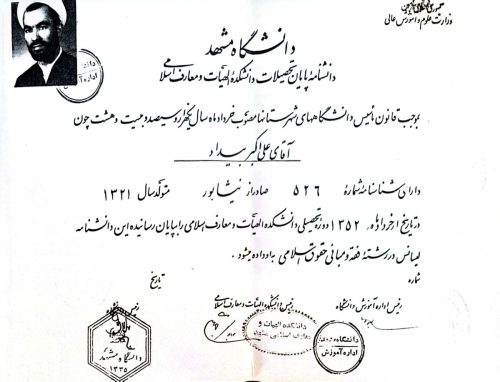 وزارت علوم و آموزش عالی
دانشگاه مشهد
دانشنامهٔ پایان تحصیلات دانشکدهٔ الهیات و معارف اسلامی
بموجب قانون تأسیس دانشگاههای شهرستانها مصوّب خرداد ماه سال یکهزار و سیصد و بیست و هشت چون
آقای علی اکبر بیداد
دارای شناسنامهٔ شمارهٔ ۵۲۶ صادر از نیشابور متولّد سال ۱۳۲۱
در تاریخ خرداد ماه ۱۳۵۲ دورهٔ تحصیلی دانشکدهٔ الهیات و معارف اسلامی را بپایان رسانیده این دانشنامه
لیسانس در رشتهٔ فقه و مبانی حقوق اسلامی به او داده میشود.
شماره
تاریخ
رئیس ادارهٔ آموزش دانشگاه
رئیس دانشکدهٔ الهیات و معارف اسلامی
رئیس دانشگاه
دانشکده الهیات و
معارف اسلامی مشهد
اداره آموزش
دانشگاه مشهد
۱۳۳۵